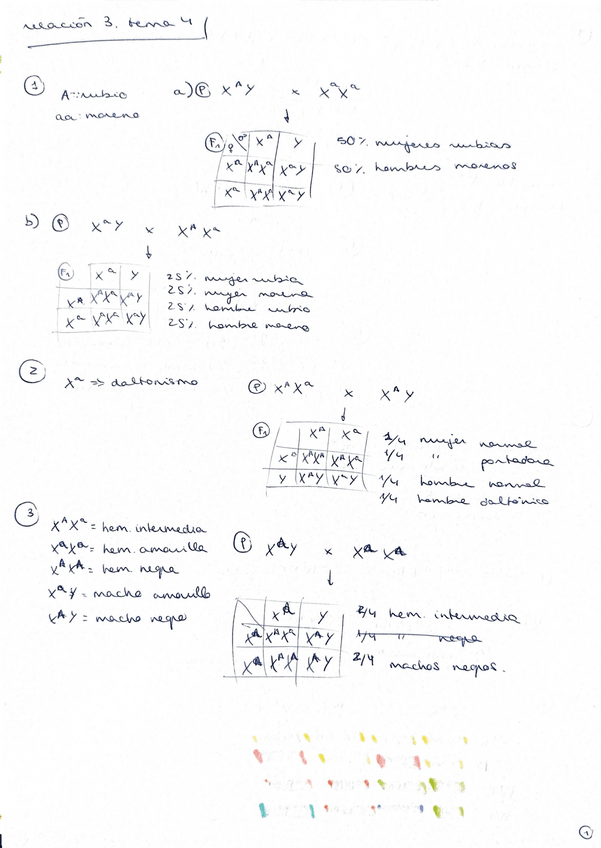 relación 3. tema 4
1
A-: rubio
aa: moreno
a) P X^A Y x X^a X^a
F1 ♀ ♂ X^A Y
X^a X^A X^a X^a Y
X^a X^A X^a X^a Y
50% mujeres rubias
50% hombres morenos
b) P X^a Y x X^A X^a
F1 X^a Y
X^A X^A X^a X^A Y
X^a X^a X^a X^a Y
25% mujer rubia
25% mujer morena
25% hombre rubio
25% hombre moreno
2
X^a => daltonismo
P X^A X^a x X^A Y
F1 X^A X^a
X^A X^A X^A X^A X^a
Y X^A Y X^a Y
1/4 mujer normal
1/4 " portadora
1/4 hombre normal
1/4 hombre daltónico
3
X^A X^a = hem. intermedia
X^a X^a = hem. amarilla
X^A X^A = hem. negra
X^a Y = macho amarillo
X^A Y = macho negro
P Y x
Y
2/4 hem. intermedia
1/4 " negra
2/4 machos negros.
1